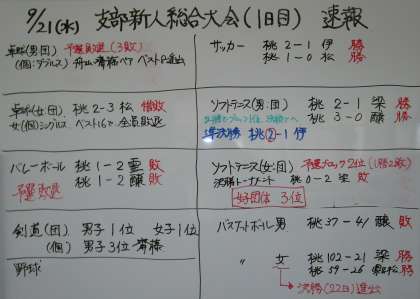 9/21(水) 支部新人総合大会(1日目) 速報
卓球(男・団) 予選敗退(3敗)
(個:ダブルス) 舟山・齋藤ペア ベスト8進出
卓球(女・団) 桃 2-3 松 惜敗
女(個)シングルス ベスト16で全員敗退
バレーボール 桃 1-2 霊 敗
桃 1-2 醸 敗
予選敗退
剣道(団) 男子1位 女子1位
(個) 男子3位 齋藤
野球
サッカー 桃 2-1 伊 勝
桃 1-0 松 勝
ソフトテニス(男:団) 桃 2-1 梁 勝
桃 3-0 醸 勝
準決勝 桃②-1 伊
ソフトテニス(女:団) 予選ブロック2位(1勝2敗)
決勝トーナメント 桃 0-2 梁 敗
女子団体 3位
バスケットボール男 桃 37-41 醸 敗
〃 女 桃 102-21 梁 勝
桃 59-26 勝
決勝(22日)進出